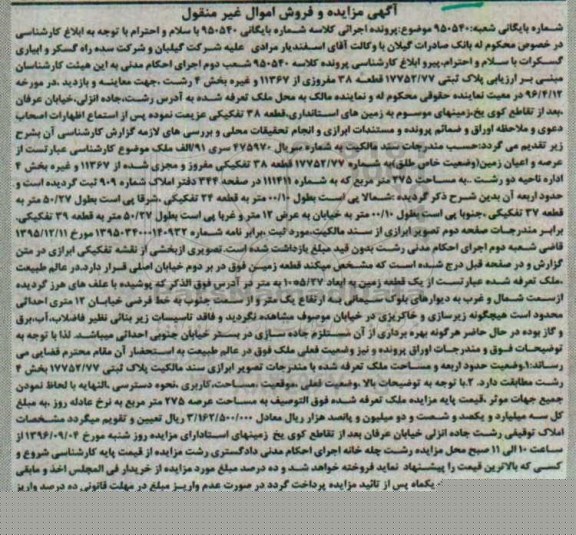 آگهی مزایده و فروش اموال غیر منقول
شماره بایگانی شعبه:۹۵۰۵۴۰ موضوع:پرونده اجرائی کلاسه شماره بایگانی ۹۵۰۵۴۰ با سلام و احترام با توجه به ابلاغ کارشناسی
در خصوص محکوم له بانک صادرات گیلان با وکالت آقای اسفندیار مرادی علیه شرکت گیلبان و شرکت سده راه گسکر و ابیاری
گسکرات با سلام و احترام،پیرو ابلاغ کارشناسی پرونده کلاسه ۹۵۰۵۴۰ شعب دوم اجرای احکام مدنی به این هیئت کارشناسان
مبنی بر ارزیابی پلاک ثبتی ۱۷۷۵۲/۷۷ قطعه ۳۸ مفروزی از ۱۱۳۶۷ و غیره بخش ۴ رشت ،جهت معاینه و بازدید ،در مورخه
۹۶/۴/۱۲ در معیت نماینده حقوقی محکوم له و نماینده مالک به محل ملک تعرفه شده به آدرس رشت،جاده انزلی،خیابان عرفان
،بعد از تقاطع کوی یخ،زمینهای موسوم به زمین های استانداری،قطعه ۳۸ تفکیکی عزیمت نموده پس از استماع اظهارات اصحاب
دعوی و ملاحظه اوراق و ضمائم پرونده و مستندات ابرازی و انجام تحقیقات محلی و بررسی های لازمه گزارش کارشناسی آن بشرح
زیر تقدیم می گردد:حسب مندرجات سند مالکیت به شماره سریال ۴۷۵۹۷۰ سری ۹۱/الف ملک موضوع کارشناسی عبارتست از
عرصه و اعیان زمین(وضعیت خاص طلق)به شماره ۱۷۷۵۲/۷۷ قطعه ۳۸ تفکیکی مفروز و مجزی شده از ۱۱۳۶۷ و غیره بخش ۴
اداره ناحیه دو رشت ..به مساحت ۳۷۵ متر مربع که به شماره ۱۱۱۴۱۱ در صفحه ۳۴۴ دفتر املاک شماره ۹۰۹ ثبت گردیده است و
حدود اربعه آن بدین شرح ذکر گردیده :شمالا پی است بطول ۱۰/۰۰ متر به قطعه ۲۴ تفکیکی ،شرقا پی است بطول ۵۰/۲۷ متر به
قطعه ۳۷ تفکیکی ،جنوبا پی است بطول ۱۰/۰۰ متر به خیابان به عرض ۱۲ متر و غربا پی است بطول ۵۰/۲۷ متر به قطعه ۳۹ تفکیکی.
برابر مندرجات صفحه دوم تصویر ابرازی از سند مالکیت،مورد ثبت ،برابر نامه شماره مورخ ۱۳۹۵/۱۲/۱۱
قاضی شعبه دوم اجرای احکام مدنی رشت بدون قید مبلغ بازداشت شده است.تصویری ازبخشی از نقشه تفکیکی ابرازی در متن
گزارش و در صفحه قبل درج شده است که مشخص میکند قطعه زمین فوق در بر دوم خیابان اصلی قرار دارد.در عالم طبیعت
،ملک تعرفه شده عبارتست از یک قطعه زمین به ابعاد متر در آدرس فوق الذکر که پوشیده با علف های هرز گردیده
ازسمت شمال و غرب به دیوارهای بلوک سیمانی به ارتفاع یک متر و از سمت جنوب به خط فرضی خیابان ۱۲ متری احداثی
محدود است هیچگونه زیرسازی و خاکریزی در خیابان موصوف مشاهده نگردید و فاقد تاسیسات زیر بنائی نظیر فاضلاب،آب،برق
و گاز بوده در حال حاضر هرگونه بهره برداری از آن مستلزم جاده سازی در بستر خیابان جنوبی احداثی میباشد. لذا با توجه به
توضیحات فوق و مندرجات اوراق پرونده و نیز وضعیت فعلی ملک فوق در عالم طبیعت به استحضار آن مقام محترم قضایی می
رساند:۱.وضعیت حدود اربعه و مساحت ملک تعرفه شده با مندرجات تصویر ابرازی سند مالکیت پلاک ثبتی ۱۷۷۵۲/۷۷ بخش ۴
رشت مطابقت دارد. ۲.با توجه به توضیحات بالا ،وضعیت فعلی ،موقعیت ،مساحت،کاربری ،نحوه دسترسی ،النهایه با لحاظ نمودن
جمیع جهات موثر ،قیمت پایه مزایده ملک تعرفه شده فوق التوصیف به مساحت عرصه ۳۷۵ متر مربع به نرخ عادله روز ،به مبلغ
کل سه میلیارد و یکصد و شصت و دو میلیون و پانصد هزار ریال معادل ۳/۱۶۲/۵۰۰/۰۰۰ ریال تعیین و تقویم میگردد مشخصات
املاک توقیفی رشت جاده انزلی خیابان عرفان بعد از تقاطع کوی یخ زمینهای استادارای مزایده روز شنبه مورخ ۱۳۹۶/۰۹/۰۴ از
ساعت ۱۰ الی ۱۱ صبح محل مزایده رشت چله خانه اجرای احکام مدنی دادگستری رشت مزایده از قیمت پایه کارشناسی شروع و
کسی که بالاترین قیمت را پیشنهاد نماید فروخته خواهد شد و ده درصد مبلغ مورد مزایده از خریدار فی المجلس اخذ و مابقی
یکماه پس از تائید مزایده پرداخت گردد در صورت عدم واریز مبلغ در مهلت قانونی ده درصد واریز